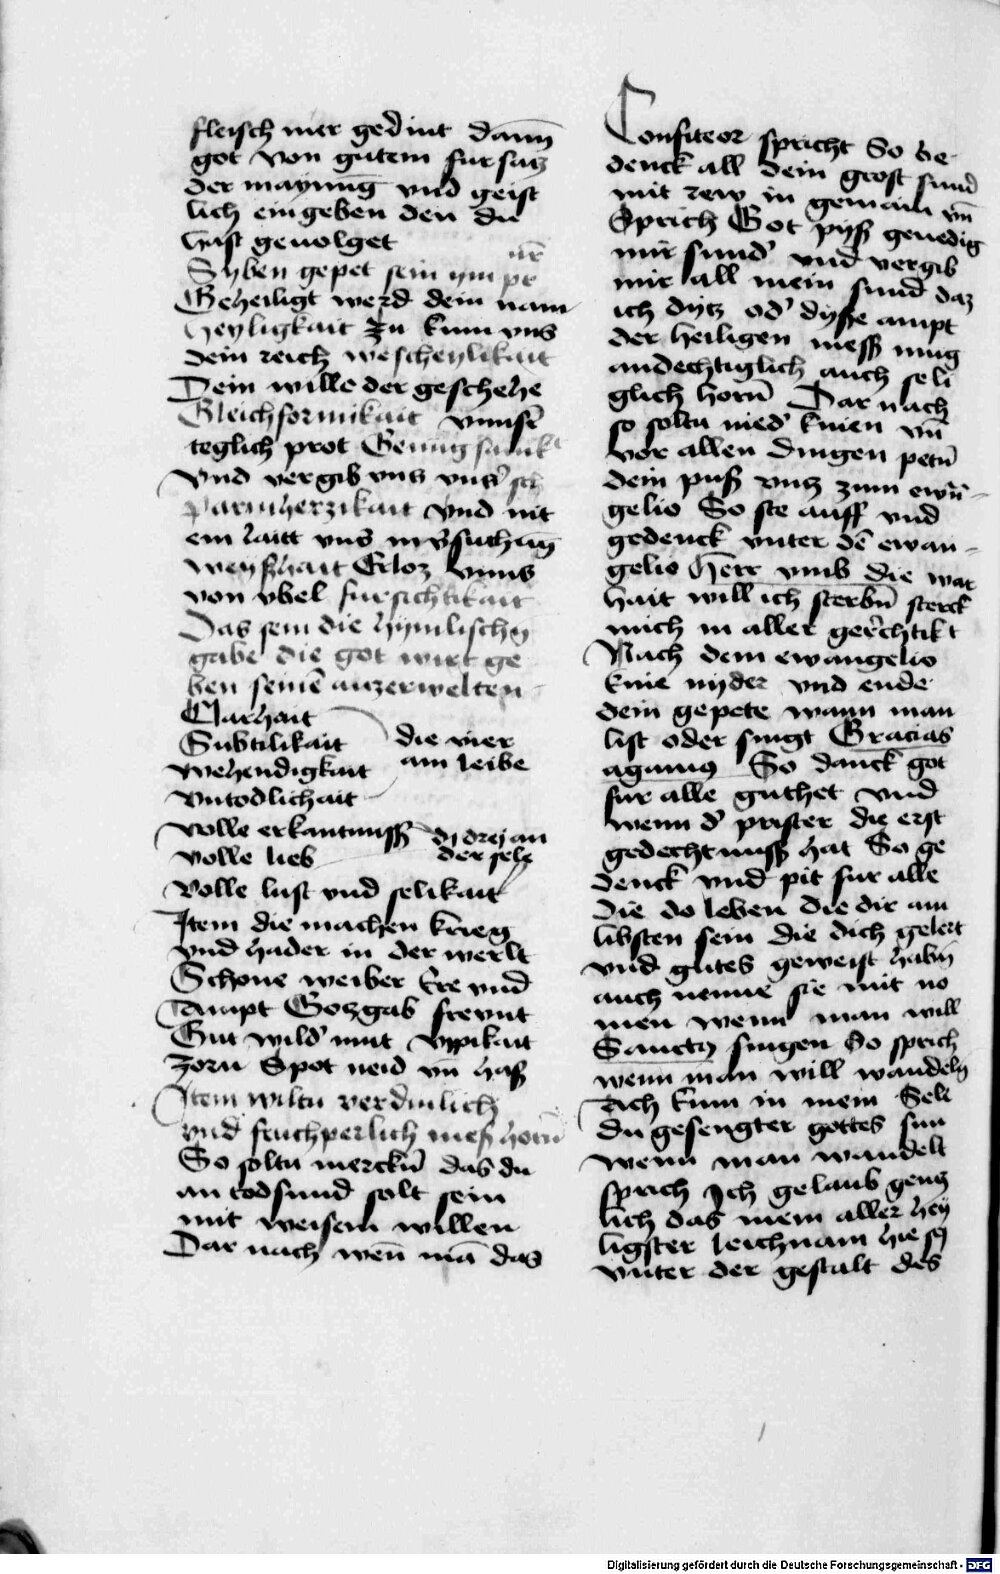 fleisch mer gedint dann̄
got von gutem fursatz
der maynūg vnd geist
lich eingeben den du
hast geuolget
Syben gepet sein ym pr̄ nr̄
Geheiligt werd dein nam
heyligkait Zu kum vns
dein reich wescheylikait
Dein wille der geschehe
Gleichformikait vnnsē
teglich prot Genūg samk
Vnd vergib vns vnsˀ sch
parmherzikait Vnd nit
em laitt vns in vˀsuchūg
weyßhait Erloz vnns
von vbel fursichtikait
Das sein die hymlischn̄
gabe die got wirt ge
ben seinē auzerwelten
Clarhait
Subtilikait die vier
wehendigkait am leibe
vntodlichait
volle erkantnuss di drej an
volle lieb der sele
volle lust vnd selikait
Item die machen krieg
vnd hader in der werlt
Schone weiber Ere vnd
Ampt Gozgab frevnt
Gut wildˀ mut vppikait
Zorn Spot neid vn̄ haß
Item wiltu verdinlich
vnd fruchperlich meß horn̄
So soltu merckn̄ das du
an todsund solt sein
mit weisem willen
Dar nach wen̄ mā das
Confiteor spricht So be
denck all dein grost sund
mit rew in gemain vn̄
Sprich Got pyß genedig
mir sundˀ vnd vergib
mir all mein sund daz
ich dytz odˀ dyße ampt
der heiligen mess mug
andechtiglich auch seli
glich horn̄ Dar nach
so soltu niedˀ knien vn̄
vor allen dingen petn̄
dein puß vntz zum ewā
gelio So ste auff vnd
gedenck vnter dē ewan
gelio Herr vmb die war
hait will ich sterbn̄ sterck
mich in aller gerˀchtikt
Nach dem ewangelio
knie nyder vnd ende
dein gepete wann man
list oder singt Gracias
agamus So danck got
fur alle guthet vnd
wenn dˀ prister die erst
gedechtnuss hat So ge
denck vnd pit fur alle
die do leben die dir am
libsten sein die dich gelert
vnd gutes geweist habn̄
auch nenne sie mit no
men wenn man will
Sanctus singen So sprich
wenn man will wandeln̄
Ach kum in mein Sele
du gesengter gottes sun
wenn man wandelt
sprich Ich gelaub genz
lich das mein aller hey
ligster leichnam hie sej
vnter der gestalt des
Digitalisierung gefördert durch die Deutsche Forschungsgemeinschaft - DFG